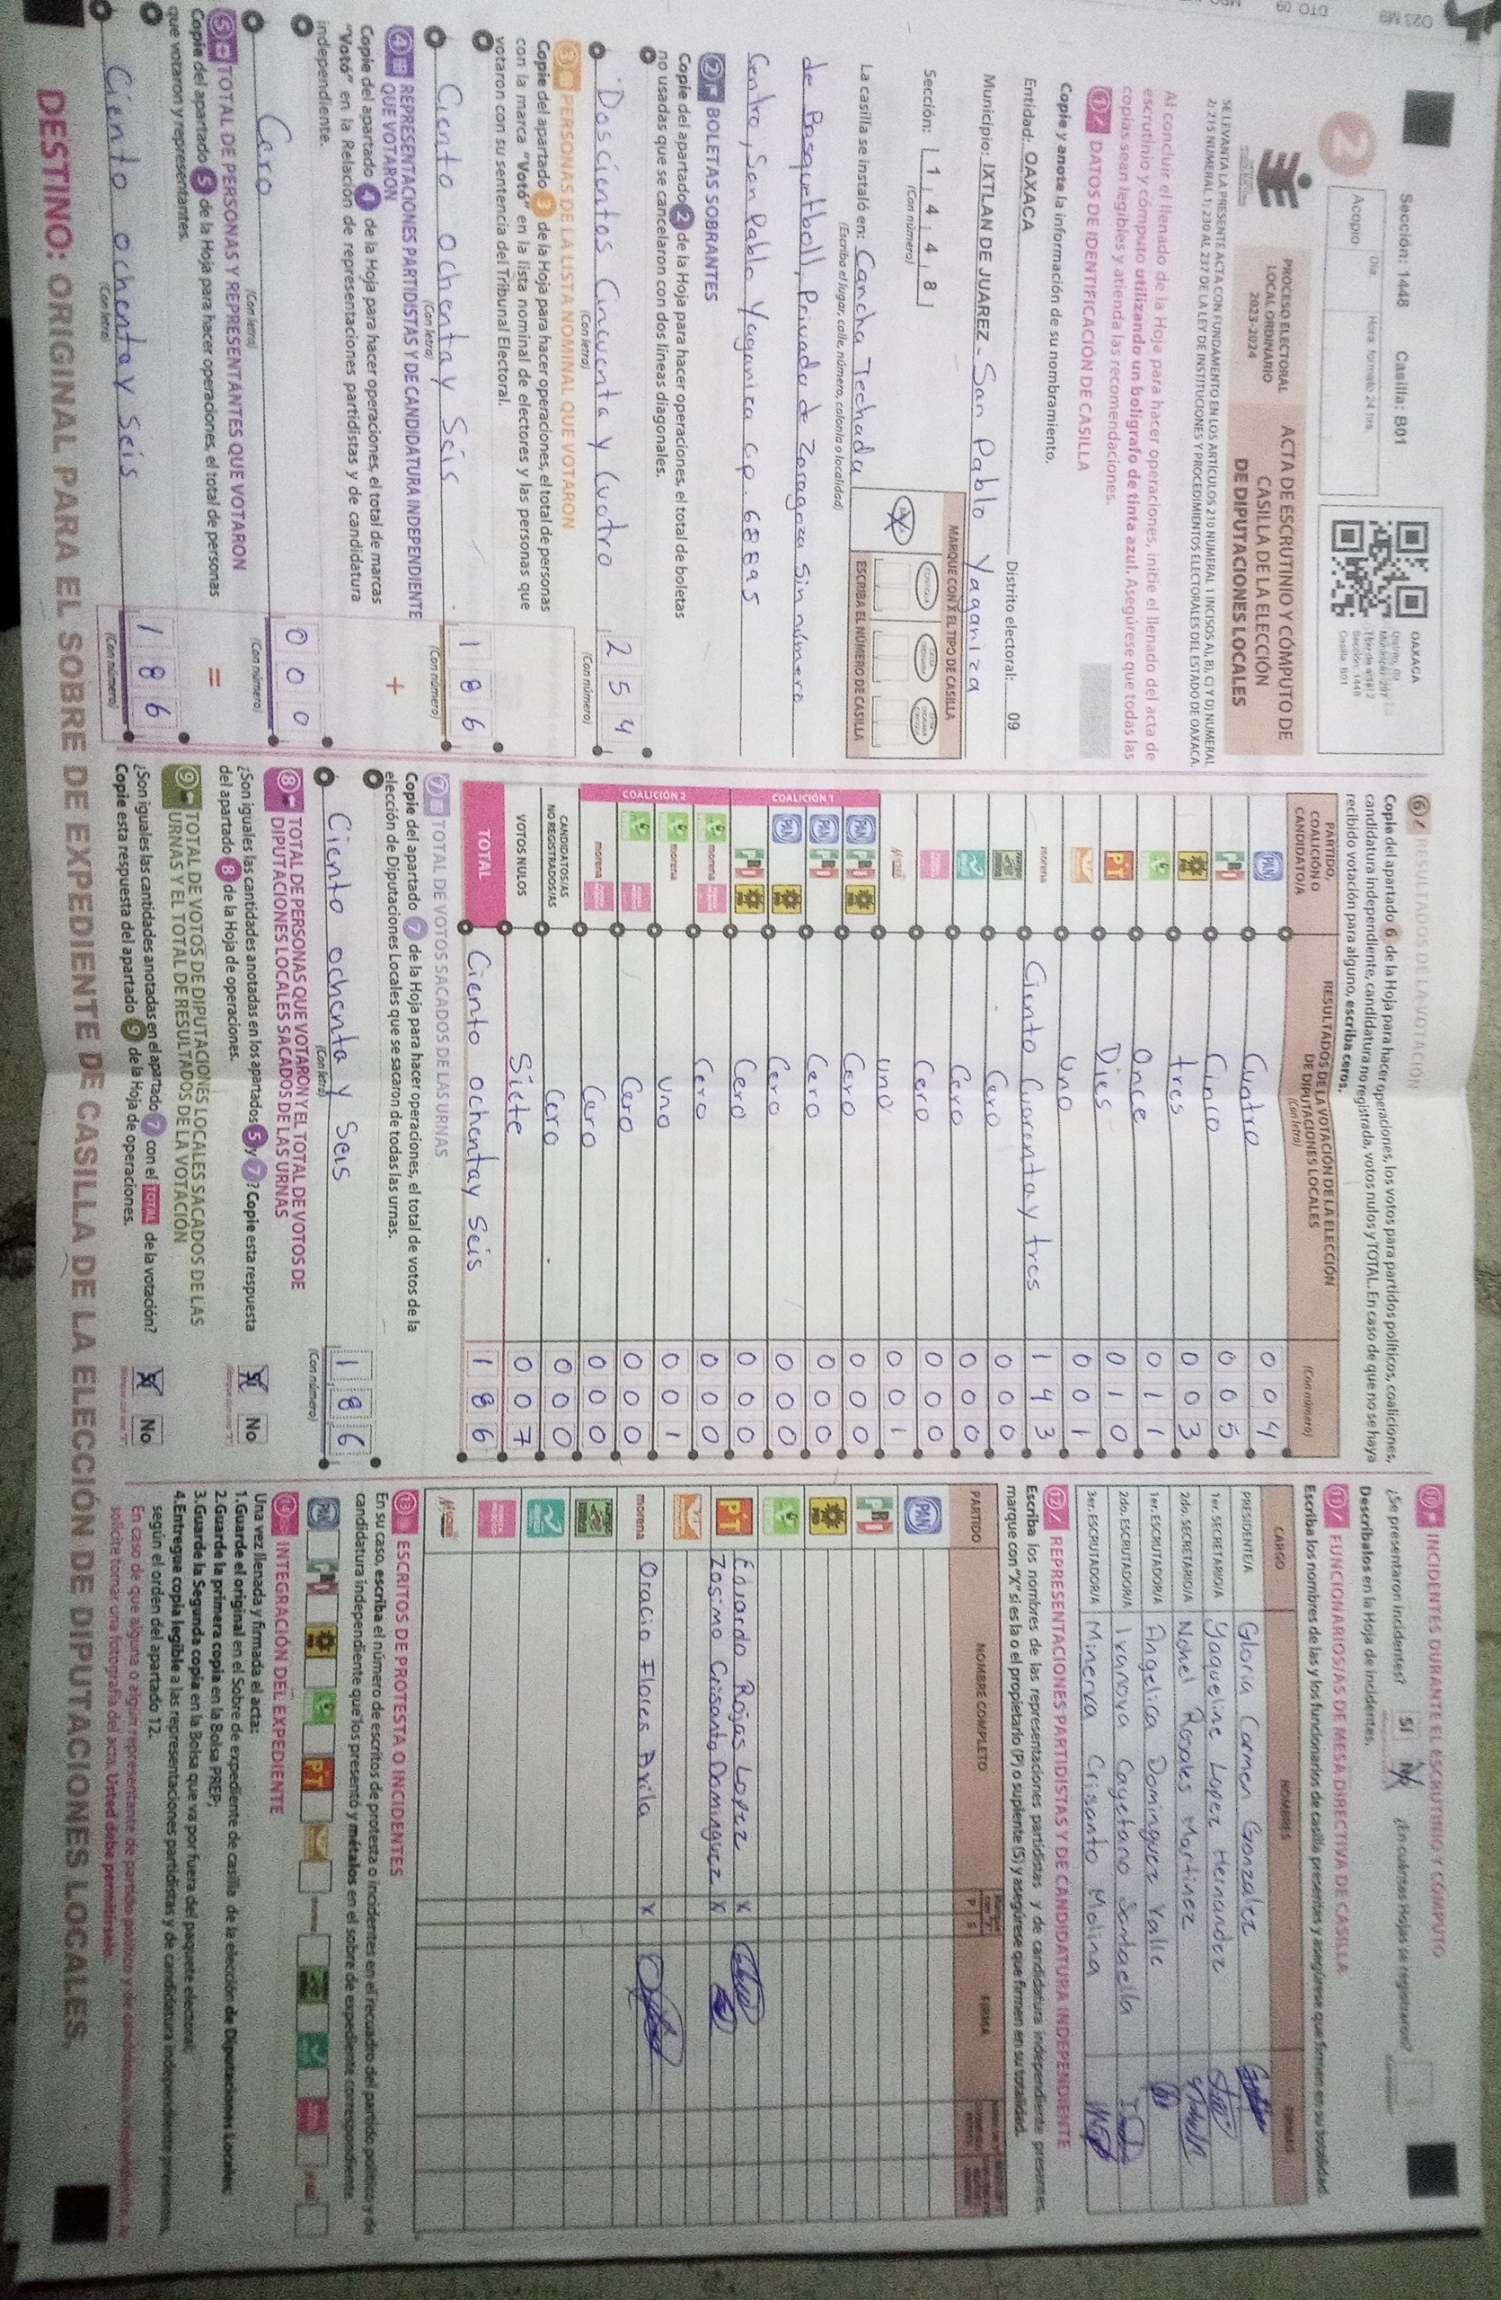 Sección: 1448 Casilla: B01
2
Acopio
Día:
Hora: formato 24 hrs.
OAXACA
Sección: 1448
Casilla: B01
PROCESO ELECTORAL
LOCAL ORDINARIO
2023-2024
ACTA DE ESCRUTINIO Y CÓMPUTO DE
CASILLA DE LA ELECCIÓN
DE DIPUTACIONES LOCALES
SE LEVANTA LA PRESENTE ACTA CON FUNDAMENTO EN LOS ARTÍCULOS 210 NUMERAL 1 INCISOS A), B), C) Y D) NUMERAL
2; 215 NUMERAL 1; 230 AL 237 DE LA LEY DE INSTITUCIONES Y PROCEDIMIENTOS ELECTORALES DEL ESTADO DE OAXACA.
Al concluir el llenado de la Hoja para hacer operaciones, inicie el llenado del acta de
escrutinio y cómputo utilizando un bolígrafo de tinta azul. Asegúrese que todas las
copias sean legibles y atienda las recomendaciones.
1 DATOS DE IDENTIFICACIÓN DE CASILLA
Copie y anote la información de su nombramiento.
Entidad: OAXACA Distrito electoral: 09
Municipio: IXTLAN DE JUAREZ - San Pablo Yaganiza
Sección: 1 4 4 8
(Con número)
MARQUE CON X EL TIPO DE CASILLA
ESCRIBA EL NÚMERO DE CASILLA
La casilla se instaló en: Cancha Techada
(Escriba el lugar, calle, número, colonia o localidad)
de Basquetboll, Privada de Zaragoza sin número
Centro, San Pablo Yaganiza C.p. 68895
2 BOLETAS SOBRANTES
Copie del apartado 2 de la Hoja para hacer operaciones, el total de boletas
no usadas que se cancelaron con dos líneas diagonales.
Doscientos Cincuenta y Cuatro 2 5 4
(Con letra) (Con número)
3 PERSONAS DE LA LISTA NOMINAL QUE VOTARON
Copie del apartado 3 de la Hoja para hacer operaciones, el total de personas
con la marca "Votó" en la lista nominal de electores y las personas que
votaron con su sentencia del Tribunal Electoral.
Ciento ochenta y Seis 1 8 6
(Con letra) (Con número)
4 REPRESENTACIONES PARTIDISTAS Y DE CANDIDATURA INDEPENDIENTE
QUE VOTARON +
Copie del apartado 4 de la Hoja para hacer operaciones, el total de marcas
"Votó" en la Relación de representaciones partidistas y de candidatura
independiente.
Cero 0 0 0
(Con letra) (Con número)
5 TOTAL DE PERSONAS Y REPRESENTANTES QUE VOTARON
Copie del apartado 5 de la Hoja para hacer operaciones, el total de personas =
que votaron y representantes.
Ciento ochenta y Seis 1 8 6
(Con letra) (Con número)
6 RESULTADOS DE LA VOTACIÓN
Copie del apartado 6 de la Hoja para hacer operaciones, los votos para partidos políticos, coaliciones,
candidatura independiente, candidatura no registrada, votos nulos y TOTAL. En caso de que no se haya
recibido votación para alguno, escriba ceros.
PARTIDO,
COALICIÓN O
CANDIDATO/A
RESULTADOS DE LA VOTACIÓN DE LA ELECCIÓN
DE DIPUTACIONES LOCALES
(Con letra)
(Con número)
PAN Cuatro 0 0 4
PRI Cinco 0 0 5
PRD tres 0 0 3
VERDE Once 0 1 1
PT Dies 0 1 0
Uno 0 0 1
morena Ciento Cuarenta y tres 1 4 3
Cero 0 0 0
Cero 0 0 0
Cero 0 0 0
uno 0 0 1
COALICIÓN 1
PAN PRI PRD Cero 0 0 0
PAN PRI Cero 0 0 0
PAN PRD Cero 0 0 0
PRI PRD Cero 0 0 0
COALICIÓN 2
VERDE morena Cero 0 0 0
VERDE morena uno 0 0 1
VERDE Cero 0 0 0
morena Cero 0 0 0
CANDIDATOS/AS
NO REGISTRADOS/AS Cero 0 0 0
VOTOS NULOS Siete 0 0 7
TOTAL Ciento ochenta y Seis 1 8 6
7 TOTAL DE VOTOS SACADOS DE LAS URNAS
Copie del apartado 7 de la Hoja para hacer operaciones, el total de votos de la
elección de Diputaciones Locales que se sacaron de todas las urnas.
Ciento ochenta y Seis 1 8 6
(Con letra) (Con número)
8 TOTAL DE PERSONAS QUE VOTARON Y EL TOTAL DE VOTOS DE
DIPUTACIONES LOCALES SACADOS DE LAS URNAS
¿Son iguales las cantidades anotadas en los apartados 5 y 7? Copie esta respuesta
del apartado 8 de la Hoja de operaciones. Sí No
9 TOTAL DE VOTOS DE DIPUTACIONES LOCALES SACADOS DE LAS
URNAS Y EL TOTAL DE RESULTADOS DE LA VOTACIÓN
¿Son iguales las cantidades anotadas en el apartado 7 con el TOTAL de la votación?
Copie esta respuesta del apartado 9 de la Hoja de operaciones. Sí No
10 INCIDENTES DURANTE EL ESCRUTINIO Y CÓMPUTO
¿Se presentaron incidentes? SÍ No ¿En cuántas Hojas se registraron?
Descríbalos en la Hoja de incidentes.
11 FUNCIONARIOS/AS DE MESA DIRECTIVA DE CASILLA
Escriba los nombres de las y los funcionarios de casilla presentes y asegúrese que firmen en su totalidad.
CARGO NOMBRES FIRMAS
PRESIDENTE/A Gloria Carmen Gonzalez
1er. SECRETARIO/A Yaqueline Lopez Hernandez
2do. SECRETARIO/A Nohel Rosales Martinez
1er. ESCRUTADOR/A Angelica Dominguez Valle
2do. ESCRUTADOR/A Ivanova Cayetano Santaella
3er. ESCRUTADOR/A Minerva Crisanto Molina
12 REPRESENTACIONES PARTIDISTAS Y DE CANDIDATURA INDEPENDIENTE
Escriba los nombres de las representaciones partidistas y de candidatura independiente presentes,
marque con "X" si es la o el propietario (P) o suplente (S) y asegúrese que firmen en su totalidad.
PARTIDO NOMBRE COMPLETO P S FIRMA
PAN
PRI
PRD
VERDE
PT Eduardo Rojas Lopez X
Zosimo Crisanto Dominguez X
morena Oracio Flores Avila X
13 ESCRITOS DE PROTESTA O INCIDENTES
En su caso, escriba el número de escritos de protesta o incidentes en el recuadro del partido político y de
candidatura independiente que los presentó y métalos en el sobre de expediente correspondiente.
PAN PRI PRD VERDE PT
14 INTEGRACIÓN DEL EXPEDIENTE
Una vez llenada y firmada el acta:
1.Guarde el original en el Sobre de expediente de casilla de la elección de Diputaciones Locales;
2.Guarde la primera copia en la Bolsa PREP;
3.Guarde la Segunda copia en la Bolsa que va por fuera del paquete electoral;
4.Entregue copia legible a las representaciones partidistas y de candidatura independiente presentes,
según el orden del apartado 12.
En caso de que alguna o algún representante de partido político y de candidatura independiente, le
solicite tomar una fotografía del acta. Usted debe permitírselo.
DESTINO: ORIGINAL PARA EL SOBRE DE EXPEDIENTE DE CASILLA DE LA ELECCIÓN DE DIPUTACIONES LOCALES.